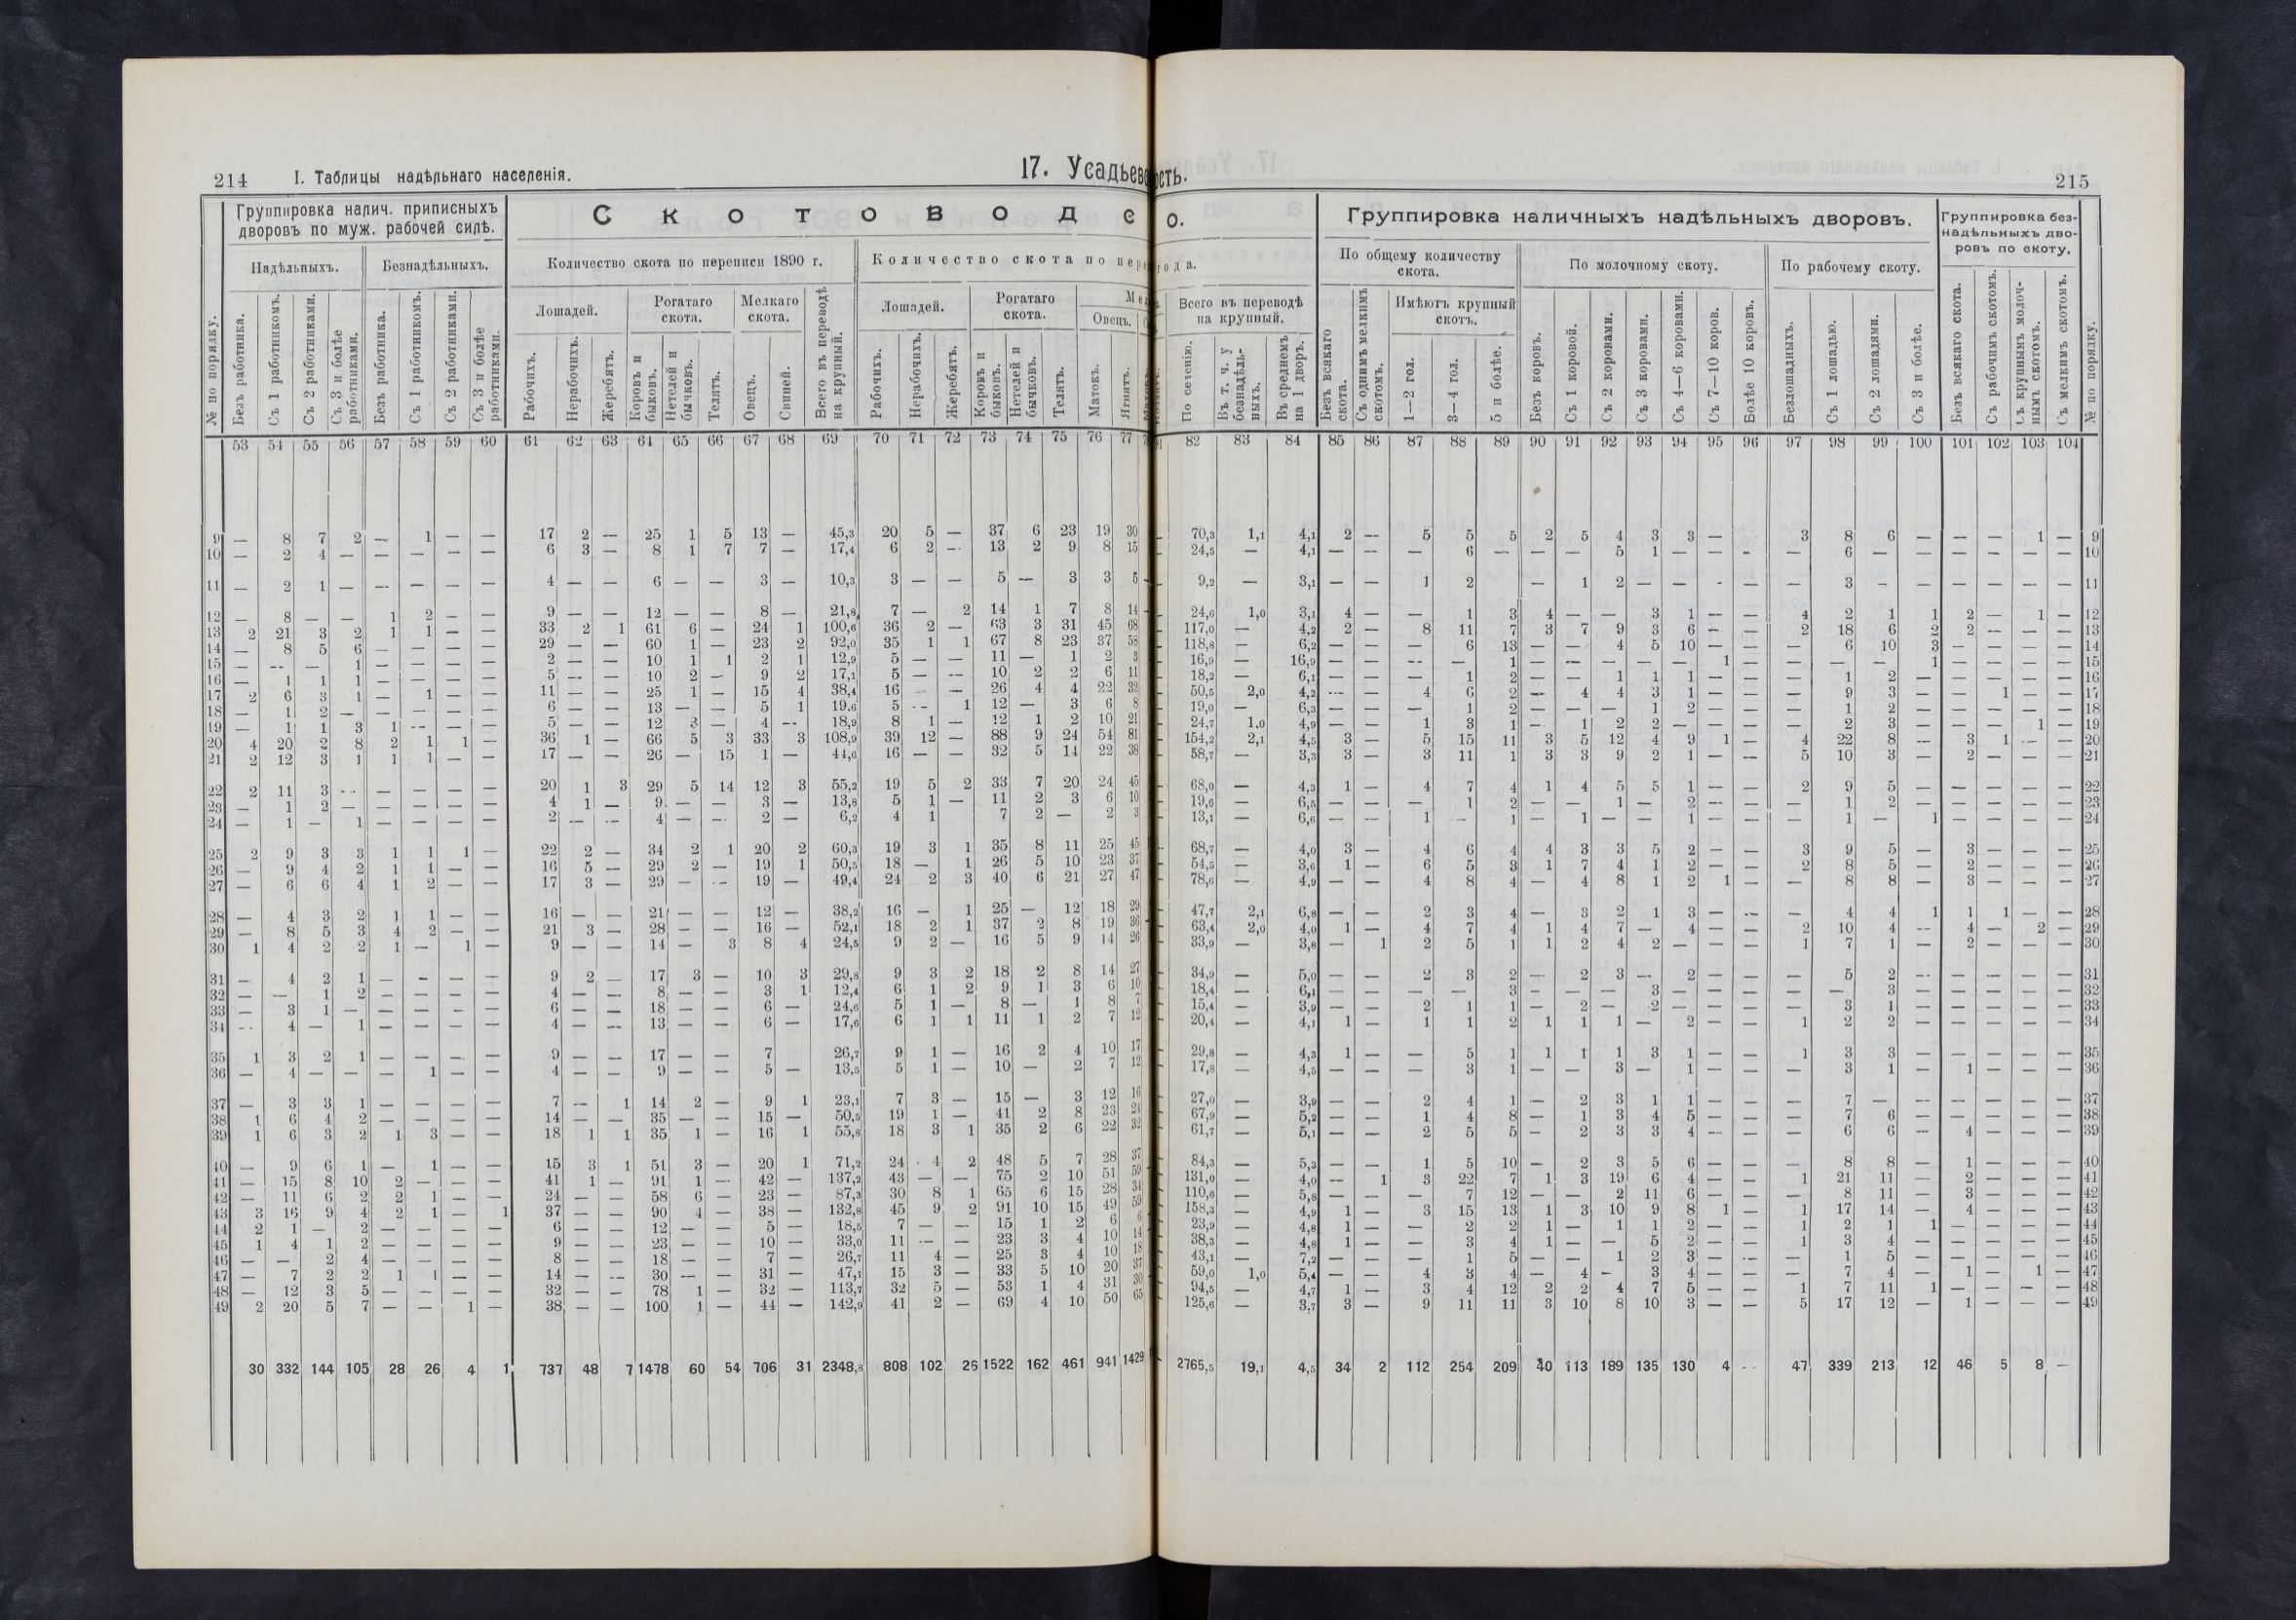 214 I. Таблицы надѣльнаго населенія. 17. Усадьев
ость. 215
Группировка налич. приписныхъ дворовъ по муж. рабочей силѣ.
Надѣльныхъ. Безнадѣльныхъ.
№ по порядку. Безъ работника. Съ 1 работникомъ. Съ 2 работниками. Съ 3 и болѣе работниками. Безъ работника. Съ 1 работникомъ. Съ 2 работниками. Съ 3 и болѣе работниками.
С к о т о в о д с
о.
Количество скота по переписи 1890 г.
Лошадей. Рогатаго скота. Мелкаго скота. Всего въ переводѣ на крупный.
Рабочихъ. Нерабочихъ. Жеребятъ. Коровъ и быковъ. Нетелей и бычковъ. Телятъ. Овецъ. Свиней.
Количество скота по пер
года.
Лошадей. Рогатаго скота. Овецъ.
Рабочихъ. Нерабочихъ. Жеребятъ. Коровъ и быковъ. Нетелей и бычковъ. Телятъ. Матокъ. Ягнятъ.
Всего въ переводѣ на крупный.
По селенію. Въ т. ч. у безнадѣльныхъ. Въ среднемъ на 1 дворъ.
Группировка наличныхъ надѣльныхъ дворовъ.
По общему количеству скота. По молочному скоту. По рабочему скоту.
Безъ всякаго скота. Съ однимъ мелкимъ скотомъ. Имѣютъ крупный скотъ. 1—2 гол. 3—4 гол. 5 и болѣе.
Безъ коровъ. Съ 1 коровой. Съ 2 коровами. Съ 3 коровами. Съ 4—6 коровами. Съ 7—10 коров. Болѣе 10 коровъ.
Безлошадныхъ. Съ 1 лошадью. Съ 2 лошадями. Съ 3 и болѣе.
Группировка безнадѣльныхъ дворовъ по скоту.
Безъ всякаго скота. Съ рабочимъ скотомъ. Съ крупнымъ молочнымъ скотомъ. Съ мелкимъ скотомъ. № по порядку.
53 54 55 56 57 58 59 60 61 62 63 64 65 66 67 68 69 70 71 72 73 74 75 76 77 82 83 84 85 86 87 88 89 90 91 92 93 94 95 96 97 98 99 100 101 102 103 104
9 — 8 7 2 — 1 — — 17 2 — 25 1 5 13 — 45,3 20 5 — 37 6 23 19 30 70,3 1,1 4,1 2 — 5 5 5 2 5 4 3 3 — 3 8 6 — — — 1 — 9
10 — 2 4 — — — — — 6 3 — 8 1 7 7 — 17,4 6 2 — 13 2 9 8 15 24,5 — 4,1 — — — 6 — — — 5 1 — — - — 6 — — — — — — 10
11 — 2 1 — — — — — 4 — — 6 — — 3 — 10,3 3 — — 5 — 3 3 5 9,2 — 3,1 — — 1 2 — 1 2 — — - — 3 — — — — — — 11
12 — 8 — — 1 2 — — 9 — — 12 — — 8 — 21,8 7 — 2 14 1 7 8 14 24,6 1,0 3,1 4 — — 1 3 4 — — 3 1 — — 4 2 1 1 2 — 1 — 12
13 2 21 3 2 1 1 — — 33 2 1 61 6 — 24 1 100,6 36 2 — 63 3 31 45 68 117,0 — 4,2 2 — 8 11 7 3 7 9 3 6 — — 2 18 6 2 2 — — — 13
14 — 8 5 6 — — — — 29 — — 60 1 — 23 2 92,0 35 1 1 67 8 23 37 58 118,8 — 6,2 — — — 6 13 — — 4 5 10 — — — 6 10 3 — — — — 14
15 — — — 1 — — — — 2 — — 10 1 1 2 1 12,9 5 — — 11 — 1 2 3 16,9 — 16,9 — — — — 1 — — — — — 1 — — — — 1 — — — — 15
16 — 1 1 1 — — — — 5 — — 10 2 — 9 2 17,1 5 — — 10 2 2 6 11 18,2 — 6,1 — — — 1 2 — — 1 1 1 — — — 1 2 — — — — — 16
17 2 6 3 1 — 1 — — 11 — — 25 1 — 15 4 38,4 16 — — 26 4 4 22 32 50,5 2,0 4,2 — — 4 6 2 — 4 4 3 1 — — — 9 3 — — 1 — — 17
18 — 1 2 — — — — — 6 — — 13 — — 5 1 19,6 5 — 1 12 — 3 6 8 19,0 — 6,3 — — — 1 2 — — — 1 2 — — — 1 2 — — — — — 18
19 — 1 1 3 1 — — — 5 — — 12 3 — 4 — 18,9 8 1 — 12 1 2 10 21 24,7 1,0 4,9 — — 1 3 1 — 1 2 2 — — — — 2 3 — — — 1 — 19
20 4 20 2 8 2 1 1 — 36 1 — 66 5 3 33 3 108,9 39 12 — 88 9 24 54 81 154,2 2,1 4,5 3 — 5 15 11 3 5 12 4 9 1 — 4 22 8 — 3 1 — — 20
21 2 12 3 1 1 1 — — 17 — — 26 — 15 1 — 44,6 16 — — 32 5 14 22 38 58,7 — 3,3 3 — 3 11 1 3 3 9 2 1 — — 5 10 3 — 2 — — — 21
22 2 11 3 — — — — — 20 1 3 29 5 14 12 3 55,2 19 5 2 33 7 20 24 45 68,0 — 4,3 1 — 4 7 4 1 4 5 5 1 — — 2 9 5 — — — — — 22
23 — 1 2 — — — — — 4 1 — 9 — — 3 — 13,8 5 1 — 11 2 3 6 10 19,6 — 6,5 — — — 1 2 — — 1 — 2 — — — 1 2 — — — — — 23
24 — 1 — 1 — — — — 2 — — 4 — — 2 — 6,2 4 1 7 2 — 2 3 13,1 — 6,6 — — 1 — 1 — 1 — — 1 — — — 1 — 1 — — — — 24
25 2 9 3 3 1 1 1 — 22 2 — 34 2 1 20 2 60,3 19 3 1 35 8 11 25 45 68,7 — 4,0 3 — 4 6 4 4 3 3 5 2 — — 3 9 5 — 3 — — — 25
26 — 9 4 2 1 1 — — 16 5 — 29 2 — 19 1 50,5 18 — 1 26 5 10 23 37 54,5 — 3,6 1 — 6 5 3 1 7 4 1 2 — — 2 8 5 — 2 — — — 26
27 — 6 6 4 1 2 — — 17 3 — 29 — — 19 — 49,4 24 2 3 40 6 21 27 47 78,6 — 4,9 — — 4 8 4 — 4 8 1 2 1 — — 8 8 — 3 — — — 27
28 — 4 3 2 1 1 — — 16 — — 21 — — 12 — 38,2 16 — 1 25 — 12 18 29 47,7 2,1 6,8 — — 2 3 4 — 3 2 1 3 — — — 4 4 1 1 1 — — 28
29 — 8 5 3 4 2 — — 21 3 — 28 — — 16 — 52,1 18 2 1 37 2 8 19 36 63,4 2,0 4,0 1 — 4 7 4 1 4 7 — 4 — — 2 10 4 — 4 — 2 — 29
30 1 4 2 2 1 — 1 — 9 — — 14 — 3 8 4 24,5 9 2 — 16 5 9 14 26 33,9 — 3,8 — 1 2 5 1 1 2 4 2 — — — 1 7 1 — 2 — — — 30
31 — 4 2 1 — — — — 9 2 — 17 3 — 10 3 29,8 9 3 2 18 2 8 14 27 34,9 — 5,0 — — 2 3 2 — 2 3 — 2 — — — 5 2 — — — — — 31
32 — — 1 2 — — — — 4 — — 8 — — 3 1 12,4 6 1 2 9 1 3 6 10 18,4 — 6,1 — — — — 3 — — — 3 — — — — — 3 — — — — — 32
33 — 3 1 — — — — — 6 — — 18 — — 6 — 24,6 5 1 — 8 — 1 8 7 15,4 — 3,9 — — 2 1 1 — 2 — 2 — — — — 3 1 — — — — — 33
34 — 4 — 1 — — — — 4 — — 13 — — 6 — 17,6 6 1 1 11 1 2 7 12 20,4 — 4,1 1 — 1 1 2 1 1 1 — 2 — — 1 2 2 — — — — — 34
35 1 3 2 1 — — — — 9 — — 17 — — 7 26,7 9 1 — 16 2 4 10 17 29,8 — 4,3 1 — — 5 1 1 1 1 3 1 — — 1 3 3 — — — — — 35
36 — 4 — — — 1 — — 4 — — 9 — — 5 — 13,5 5 1 — 10 — 2 7 12 17,8 — 4,5 — — — 3 1 — — 3 — 1 — — — 3 1 — 1 — — — 36
37 — 3 3 1 — — — — 7 — 1 14 2 — 9 1 23,1 7 3 — 15 — 3 12 16 27,0 — 3,9 — — 2 4 1 — 2 3 1 1 — — — 7 — — — — — — 37
38 1 6 4 2 — — — — 14 — — 35 — — 15 — 50,5 19 1 — 41 2 8 23 67,9 — 5,2 — — 1 4 8 — 1 3 4 5 — — — 7 6 — — — — — 38
39 1 6 3 2 1 3 — — 18 1 1 35 1 — 16 1 55,8 18 3 1 35 2 6 22 32 61,7 — 5,1 — — 2 5 5 — 2 3 3 4 — — — 6 6 — 4 — — — 39
40 — 9 6 1 — 1 — — 15 3 1 51 3 — 20 1 71,2 24 4 2 48 5 7 28 37 84,3 — 5,3 — — 1 5 10 — 2 3 5 6 — — — 8 8 — 1 — — — 40
41 — 15 8 10 2 — — — 41 1 — 91 1 — 42 — 137,2 43 — — 75 2 10 51 59 131,0 — 4,0 — 1 3 22 7 1 3 19 6 4 — — 1 21 11 — 2 — — — 41
42 — 11 6 2 2 1 — — 24 — — 58 6 — 23 — 87,3 30 8 1 65 6 15 28 34 110,6 — 5,8 — — — 7 12 — — 2 11 6 — — — 8 11 — 3 — — — 42
43 3 16 9 4 2 1 — 1 37 — — 90 4 — 38 — 132,8 45 9 2 91 10 15 49 59 158,3 — 4,9 1 — 3 15 13 1 3 10 9 8 1 — 1 17 14 — 4 — — — 43
44 2 1 — 2 — — — — 6 — — 12 — — 5 — 18,5 7 — — 15 1 2 6 6 23,9 — 4,8 1 — — 2 2 1 — 1 1 2 — — 1 2 1 1 — — — — 44
45 1 4 1 2 — — — — 9 — — 23 — — 10 — 33,0 11 — — 23 3 4 10 14 38,3 — 4,8 1 — — 3 4 1 — — 5 2 — — 1 3 4 — — — — — 45
46 — — 2 4 — — — — 8 — — 18 — — 7 — 26,7 11 4 — 25 3 4 10 18 43,1 — 7,2 — — — 1 5 — — 1 2 3 — — — 1 5 — — — — — 46
47 — 7 2 2 1 1 — — 14 — — 30 — — 31 — 47,1 15 3 — 33 5 10 20 37 59,0 1,0 5,4 — — 4 3 4 — 4 - 3 4 — — — 7 4 — 1 — 1 — 47
48 — 12 3 5 — — — — 32 — — 78 1 — 32 — 113,7 32 5 — 53 1 4 31 30 94,5 — 4,7 1 — 3 4 12 2 2 4 7 5 — — 1 7 11 1 — — — — 48
49 2 20 5 7 — — 1 — 38 — — 100 1 — 44 — 142,9 41 2 — 69 4 10 50 65 125,6 — 3,7 3 — 9 11 11 3 10 8 10 3 — — 5 17 12 — 1 — — — 49
30 332 144 105 28 26 4 1 737 48 7 1478 60 54 706 31 2348,8 808 102 26 1522 162 461 941 1429 2765,5 19,1 4,5 34 2 112 254 209 40 113 189 135 130 4 — 47 339 213 12 46 5 8 —